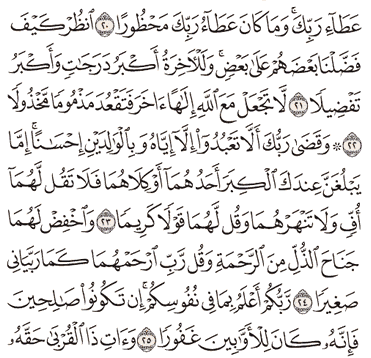 عَطَاءِ رَبِّكَ ۚ وَمَا كَانَ عَطَاءُ رَبِّكَ مَحْظُورًا ۝٢٠ ٱنظُرْ كَيْفَ
فَضَّلْنَا بَعْضَهُمْ عَلَىٰ بَعْضٍ ۚ وَلَلْآخِرَةُ أَكْبَرُ دَرَجَٰتٍ وَأَكْبَرُ
تَفْضِيلًا ۝٢١ لَّا تَجْعَلْ مَعَ ٱللَّهِ إِلَٰهًا ءَاخَرَ فَتَقْعُدَ مَذْمُومًا مَّخْذُولًا
۝٢٢ ۞ وَقَضَىٰ رَبُّكَ أَلَّا تَعْبُدُوٓا۟ إِلَّآ إِيَّاهُ وَبِٱلْوَٰلِدَيْنِ إِحْسَٰنًا ۚ إِمَّا
يَبْلُغَنَّ عِندَكَ ٱلْكِبَرَ أَحَدُهُمَآ أَوْ كِلَاهُمَا فَلَا تَقُل لَّهُمَآ
أُفٍّ وَلَا تَنْهَرْهُمَا وَقُل لَّهُمَا قَوْلًا كَرِيمًا ۝٢٣ وَٱخْفِضْ لَهُمَا
جَنَاحَ ٱلذُّلِّ مِنَ ٱلرَّحْمَةِ وَقُل رَّبِّ ٱرْحَمْهُمَا كَمَا رَبَّيَانِى
صَغِيرًا ۝٢٤ رَّبُّكُمْ أَعْلَمُ بِمَا فِى نُفُوسِكُمْ ۚ إِن تَكُونُوا۟ صَٰلِحِينَ
فَإِنَّهُۥ كَانَ لِلْأَوَّٰبِينَ غَفُورًا ۝٢٥ وَءَاتِ ذَا ٱلْقُرْبَىٰ حَقَّهُۥ